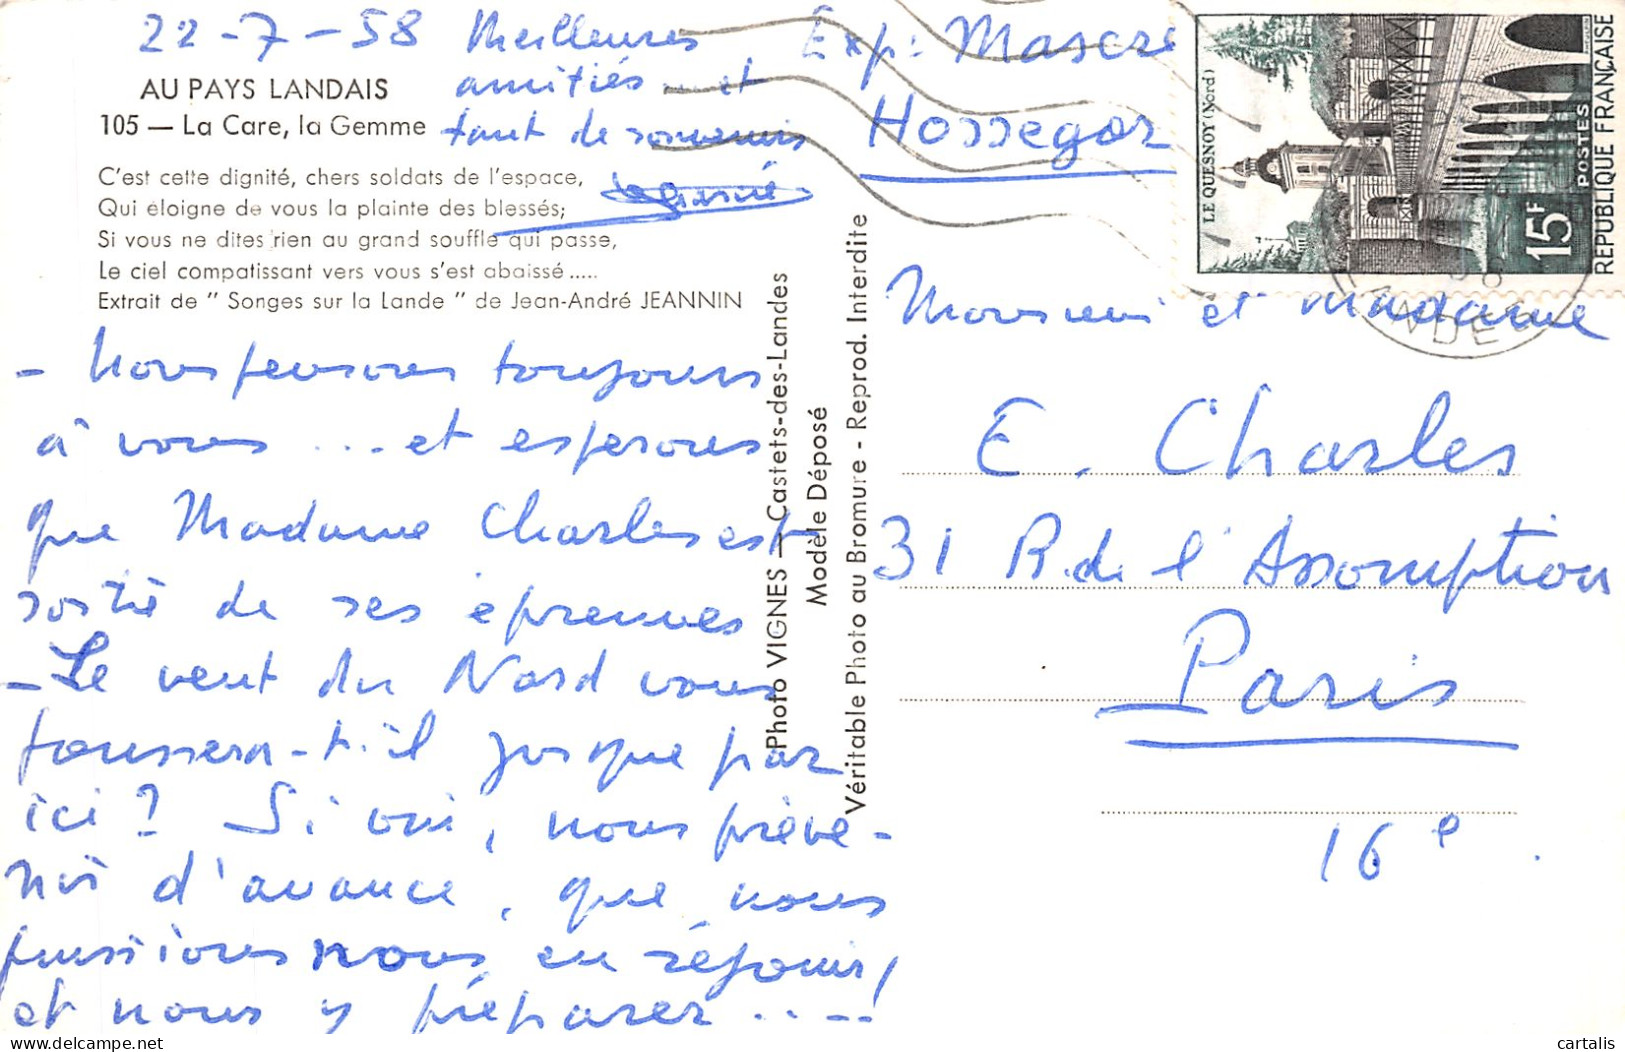 22-7-58 Meilleures
amitiés et
tant de souvenirs
Exp: Mascré
Hossegor
AU PAYS LANDAIS
105 — La Care, la Gemme
C'est cette dignité, chers soldats de l'espace,
Qui éloigne de vous la plainte des blessés;
Si vous ne dites rien au grand souffle qui passe,
Le ciel compatissant vers vous s'est abaissé.....
Extrait de " Songes sur la Lande " de Jean-André JEANNIN
- Nous pensons toujours
à vous ... et espérons
que Madame Charles est
sortie de ses épreuves
- Le vent du Nord vous
poussera-t-il jusque par
ici ? Si oui, nous préve-
nir d'avance, que nous
puissions nous en réjouir,
et nous y préparer.....
Photo VIGNES — Castets-des-Landes
Modèle Déposé
Véritable Photo au Bromure - Reprod. Interdite
LE QUESNOY (Nord)
15F
POSTES
REPUBLIQUE FRANÇAISE
LANDES
Monsieur et Madame
E. Charles
31 R. de l'Assomption
Paris
16e
cartalis